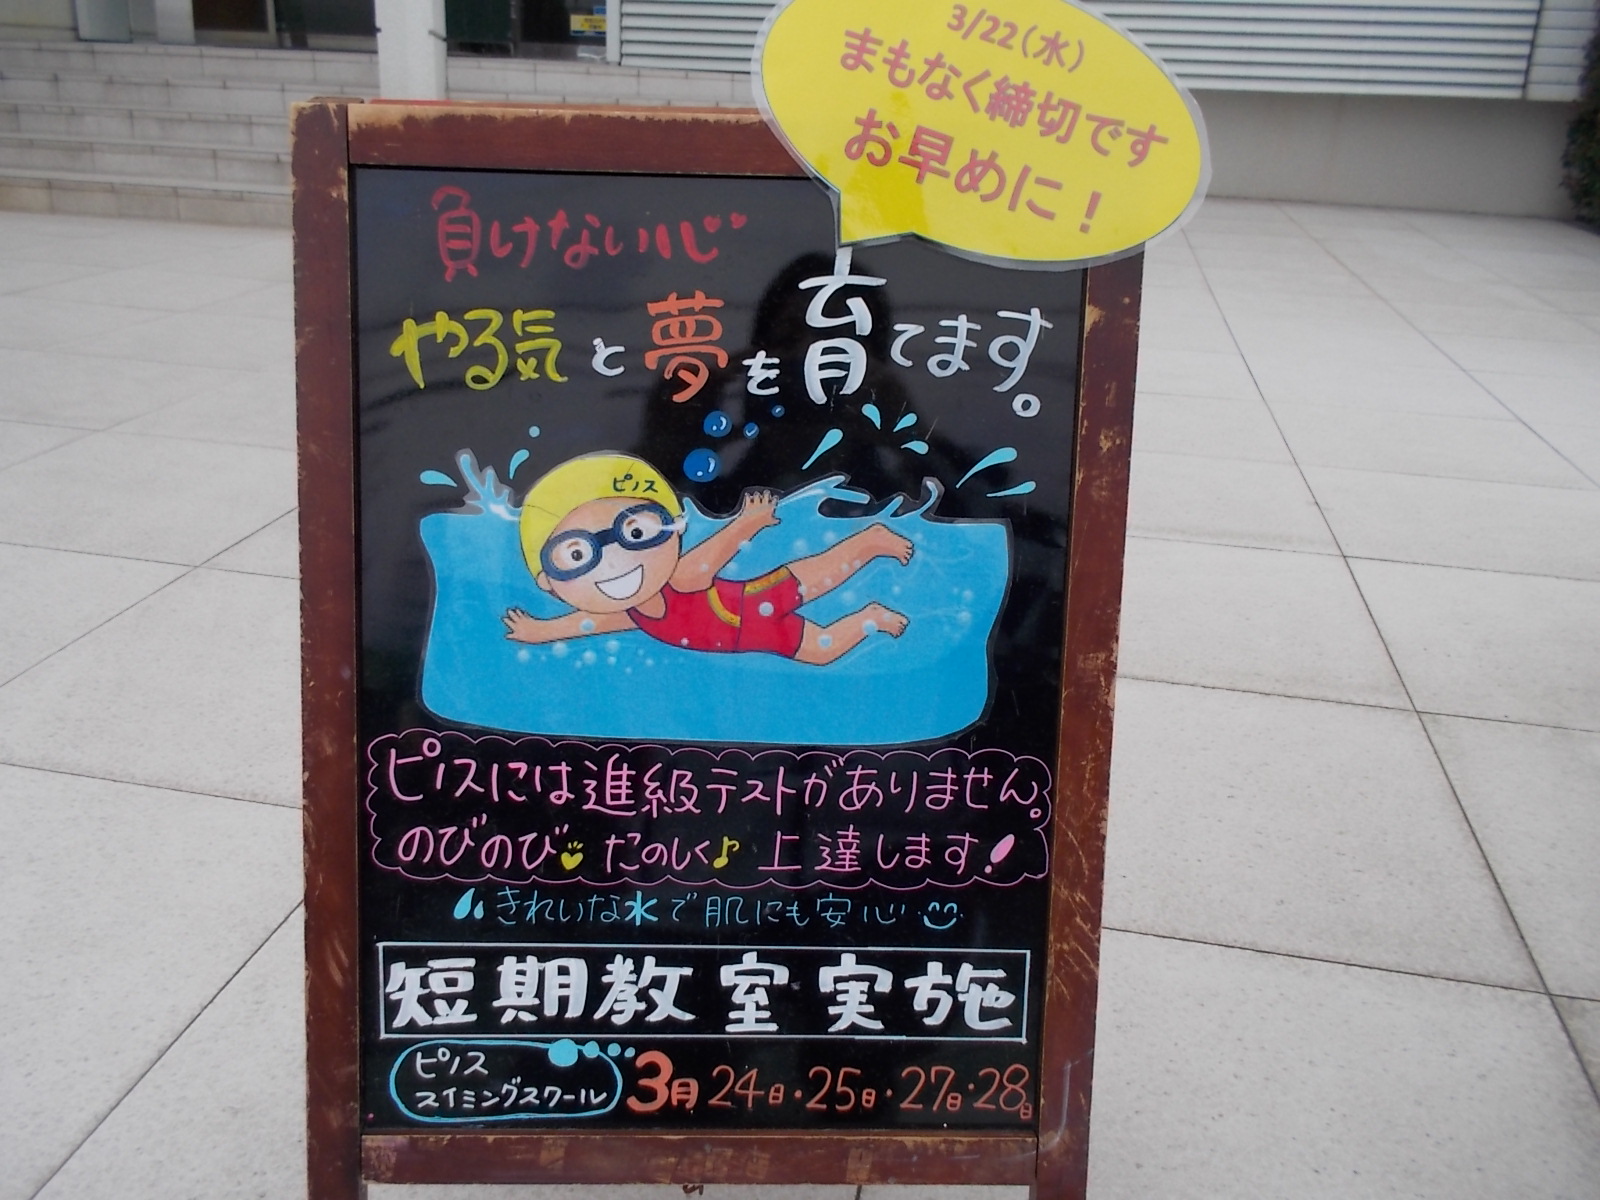 3/22(水)
まもなく締切です
お早めに!
負けない心
やる気と夢を育てます。
ピノス
ピノスには進級テストがありません。
のびのび たのしく♪ 上達します!
きれいな水で肌にも安心
短期教室実施
ピノス
スイミングスクール
3月24日・25日・27日・28日